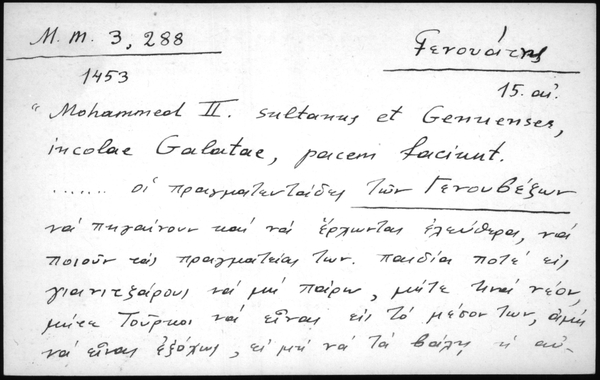 M. m. 3, 288
Γενουάτης
1453
15. αἰ.
"Mohammed II. sultanus et Genuenses,
incolae Galatae, pacem faciunt.
...... οἱ πραγματευτάδες τῶν Γενουβέζων
νά πηγαίνουν καί νά ἔρχωνται ἐλεύθεροι, νά
ποιοῦν τάς πραγματείας των. παιδία ποτέ εἰς
γιανιτζάρους νά μή πάρω, μήτε τινά νέον,
μήτε Τοῦρκοι νά εἶναι εἰς τό μέσον των, ἀμή
νά εἶναι ἐξόχως, εἰ μή νά τά βάλῃ ἡ αὐ-